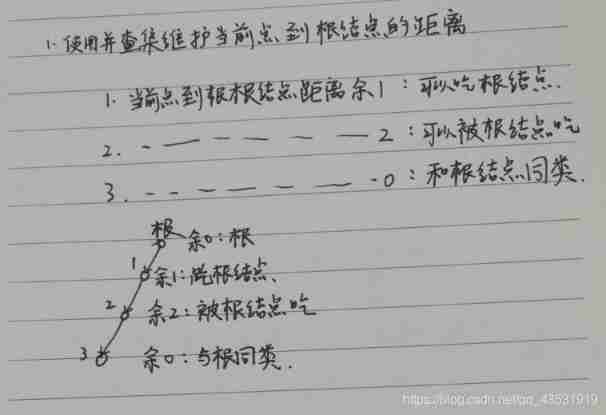 1. 使用并查集维护当前点到根结点的距离
1. 当前点到根结点距离余1：可以吃根结点.
2. - — — — — — 2：可以被根结点吃
3. - - - — — — — 0：和根结点同类.
根 余0：根
1 余1：吃根结点、
2 余2：被根结点吃
3 余0：与根同类.
https://blog.csdn.net/qq_43531919